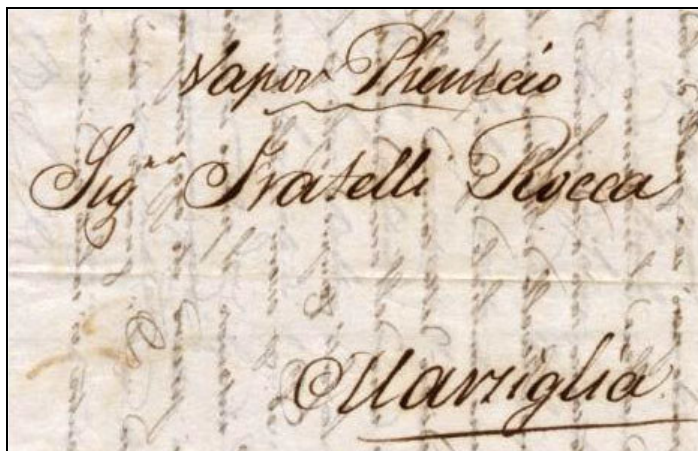 Vapor Phenicio
Sig.ri Fratelli Rocca
Marsiglia